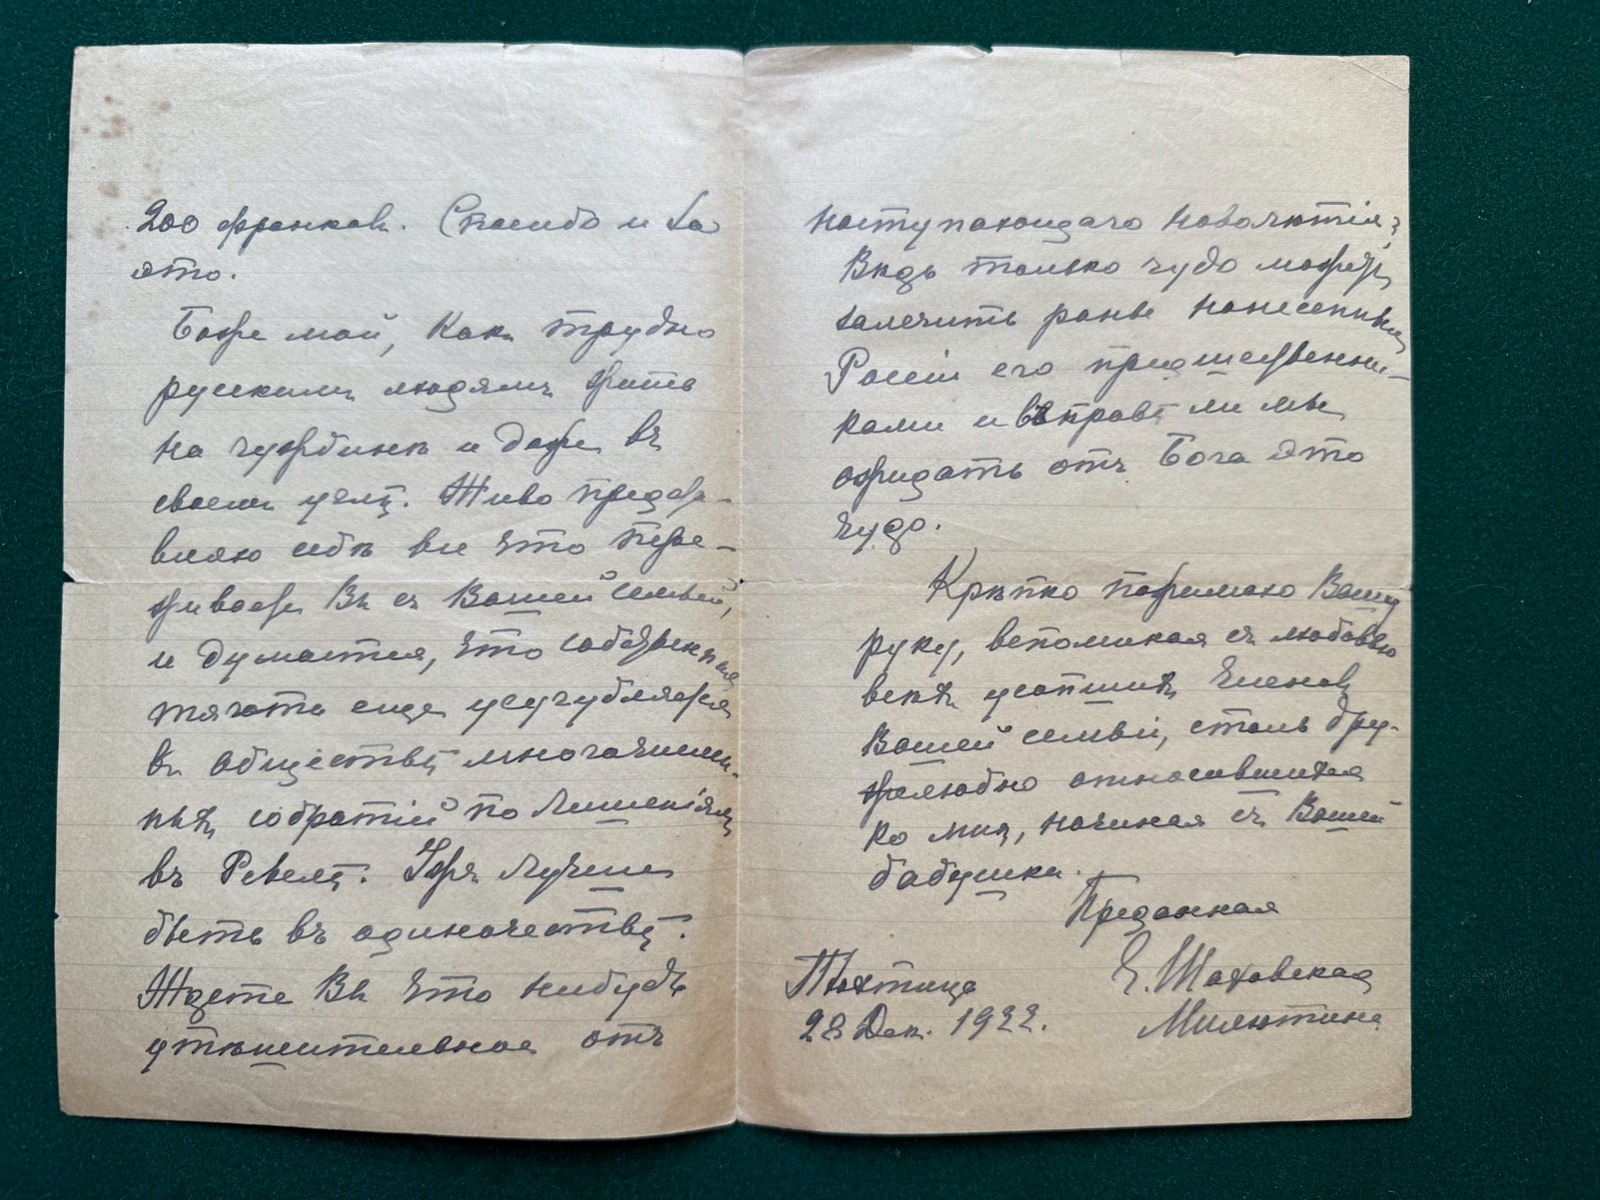 200 франковъ. Спасибо и за
это.
Боже мой, какъ трудно
русскимъ людямъ жить
на чужбинѣ и даже въ
своемъ углѣ. Живо предста-
вляю себѣ все что пере-
живаете Вы съ Вашей семьей,
и думается, что собственная
тягота еще усугубляется
въ обществѣ многочислен-
ныхъ собратій по лишеніямъ
въ Ревелѣ. Ужъ лучше
быть въ одиночествѣ.
Ждете Вы что нибудь
утѣшительное отъ
наступающаго новолѣтія?
Вѣдь только чудо можетъ
залечить раны нанесенныя
Россіи его предшественни-
ками и въ правѣ ли мы
ожидать отъ Бога это
чудо.
Крѣпко пожимаю Вашу
руку, вспоминая съ любовью
всѣхъ усопшихъ членовъ
Вашей семьи, столь дру-
желюбно относившихся
ко мнѣ, начиная съ Вашей
бабушки.
Преданная
Е. Шаховская
Милютина
Пюхтица
28 Дек. 1922.